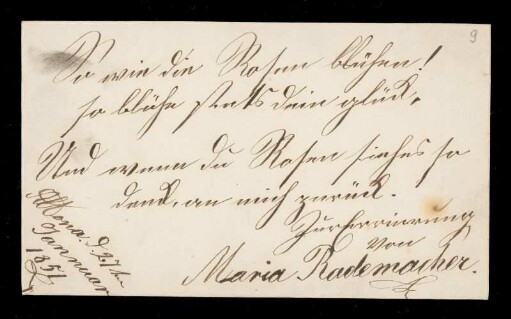 9
So wie die Rosen blühen!
so blühe stets dein glück,
Und wenn du Rosen siehes so
denk, an mich zurück.
Zur Errinrung
von
Maria Rademacher.
Altona. d. 27 te
Jannuar
1851